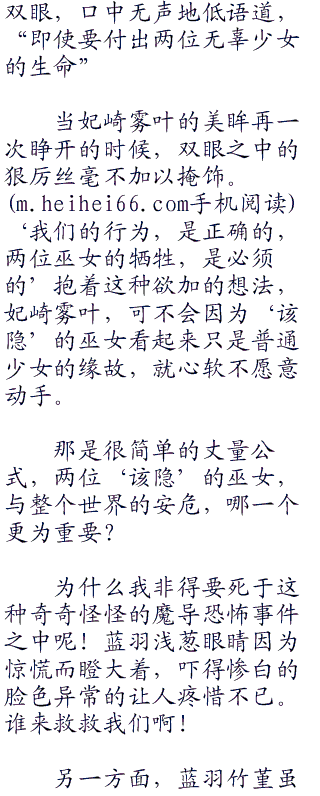 双眼，口中无声地低语道，
“即使要付出两位无辜少女
的生命”
当妃崎雾叶的美眸再一
次睁开的时候，双眼之中的
狠厉丝毫不加以掩饰。
(m.heihei66.com手机阅读)
‘我们的行为，是正确的，
两位巫女的牺牲，是必须
的’抱着这种欲加的想法，
妃崎雾叶，可不会因为‘该
隐’的巫女看起来只是普通
少女的缘故，就心软不愿意
动手。
那是很简单的丈量公
式，两位‘该隐’的巫女，
与整个世界的安危，哪一个
更为重要？
为什么我非得要死于这
种奇奇怪怪的魔导恐怖事件
之中呢！蓝羽浅葱眼睛因为
惊慌而瞪大着，吓得惨白的
脸色异常的让人疼惜不已。
谁来救救我们啊！
另一方面，蓝羽竹堇虽